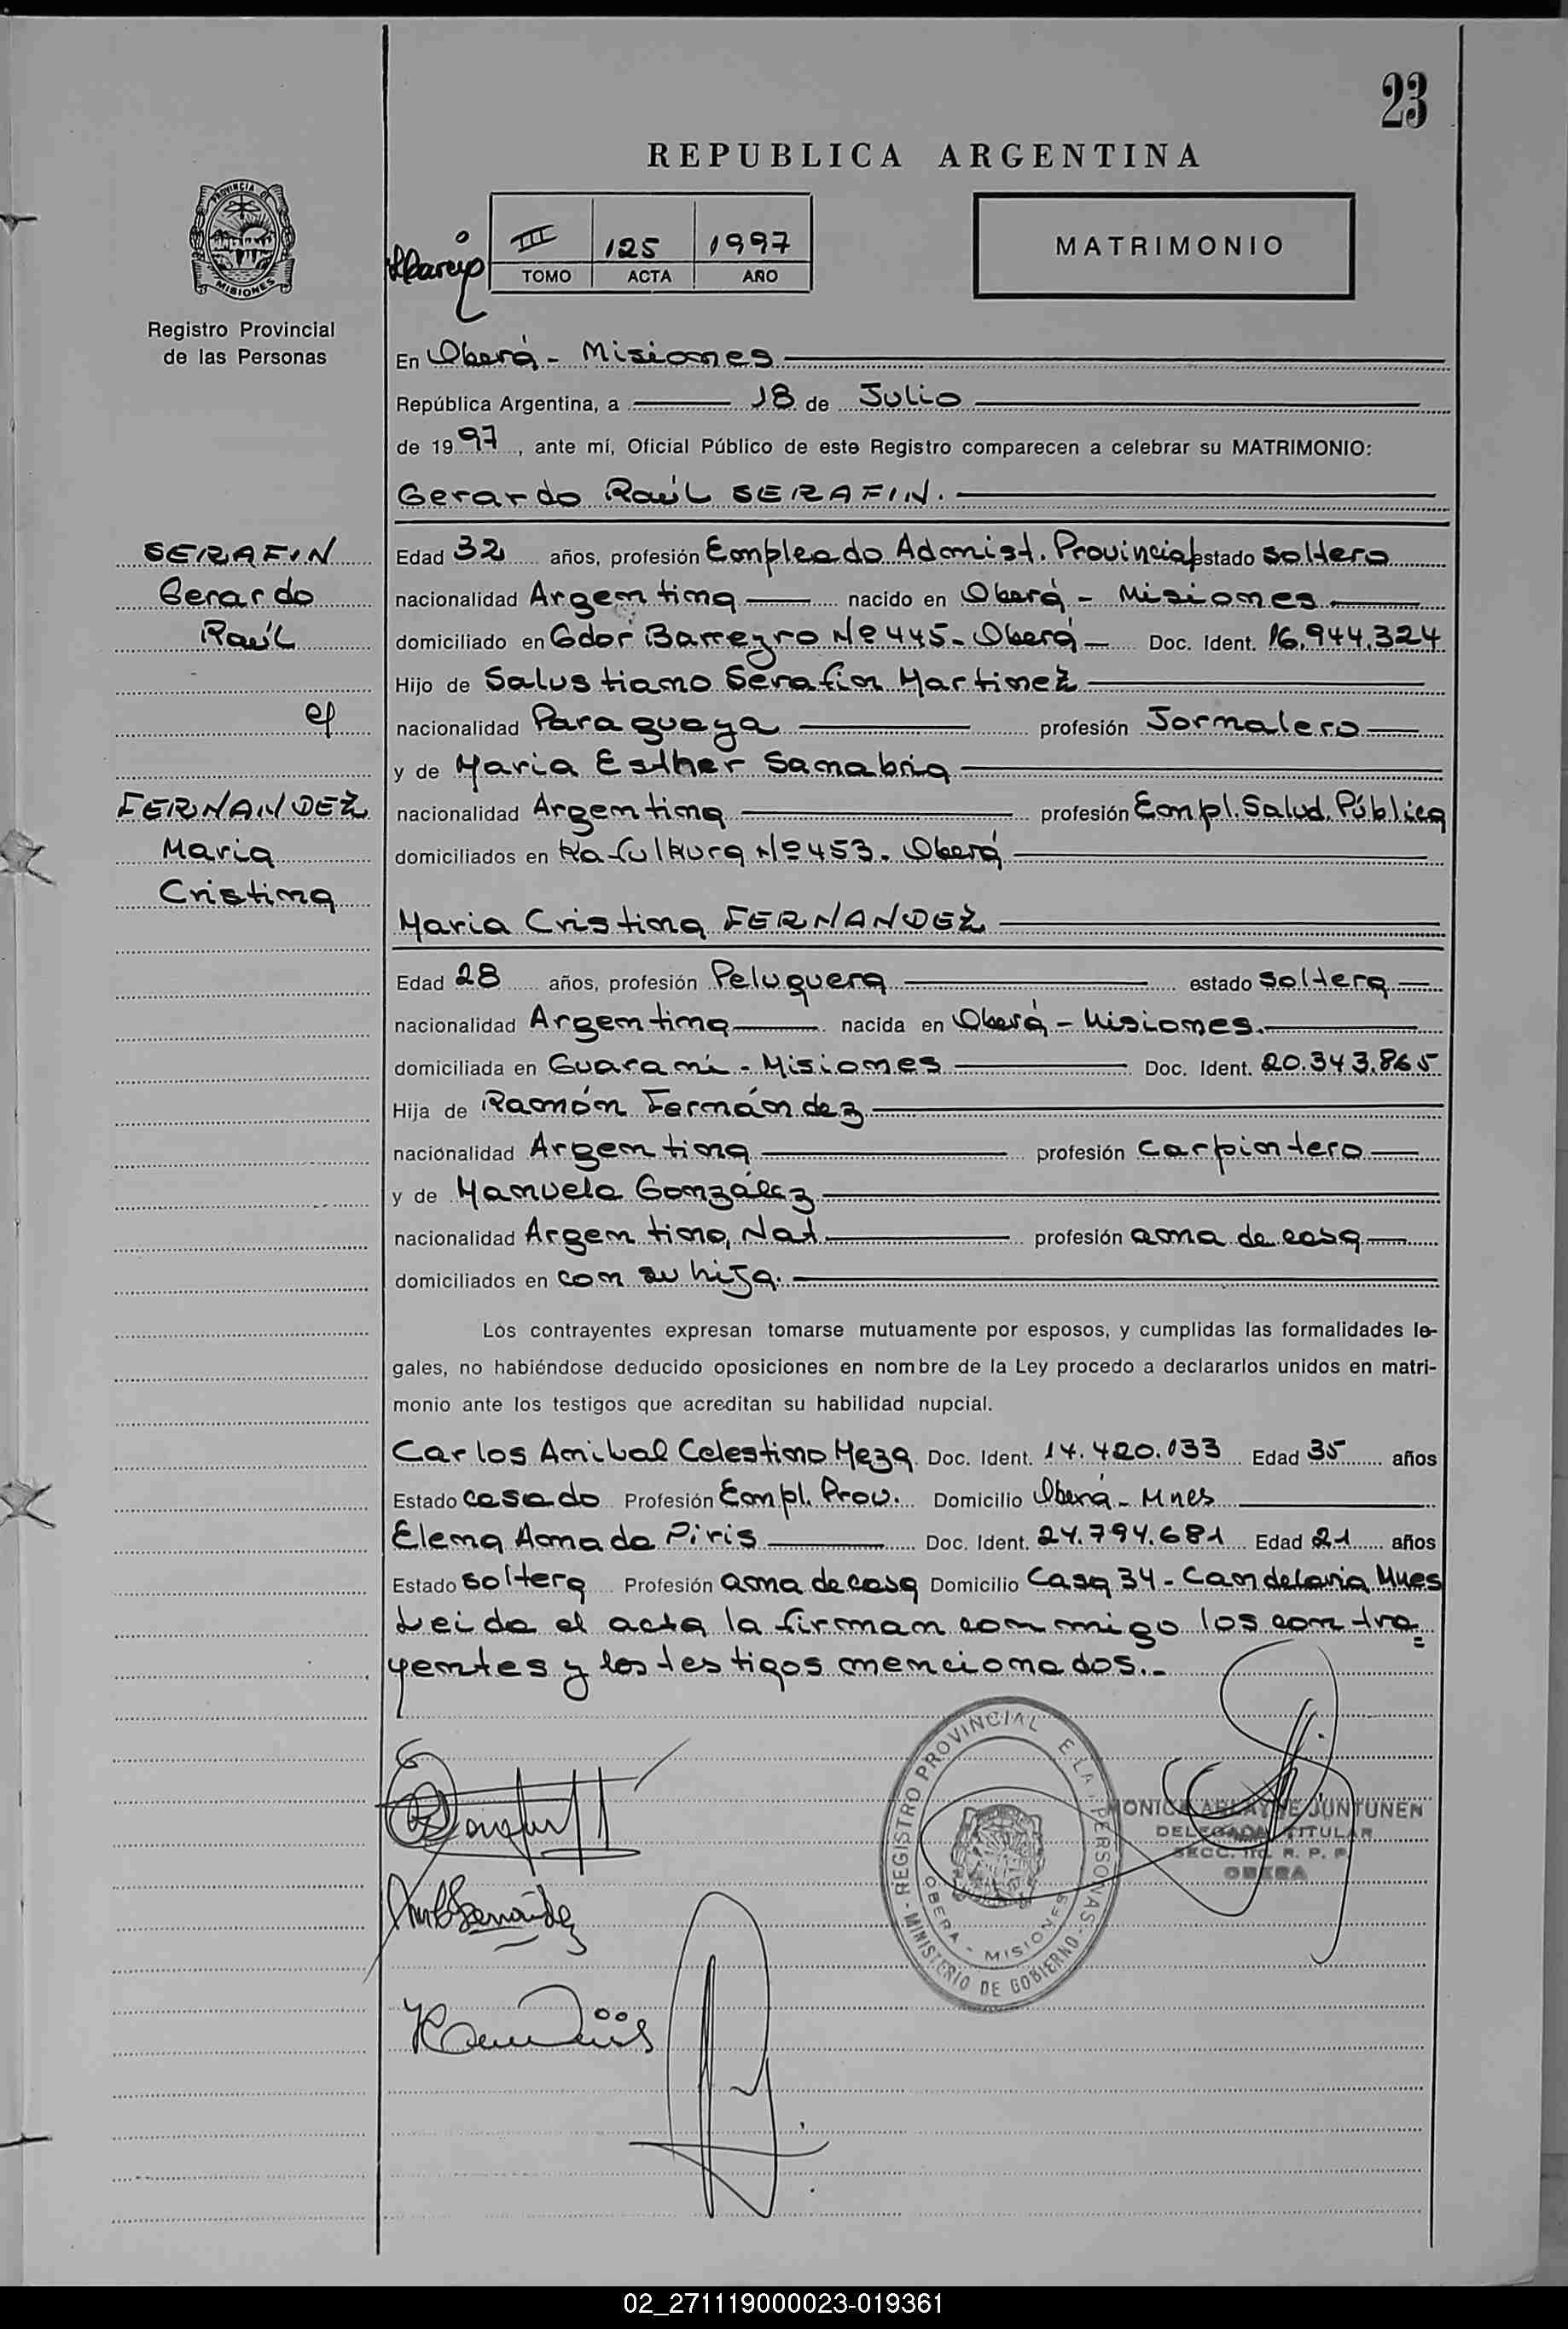 23
REPUBLICA ARGENTINA
PROVINCIA DE
MISIONES
Registro Provincial
de las Personas
III 125 1997
TOMO ACTA AÑO
MATRIMONIO
En Oberá - Misiones
República Argentina, a 18 de Julio
de 1997, ante mí, Oficial Público de este Registro comparecen a celebrar su MATRIMONIO:
Gerardo Raúl SERAFIN.
SERAFIN
Gerardo
Raúl
FERNANDEZ
Maria
Cristina
Edad 32 años, profesión Empleado Admist. Provincial estado soltero
nacionalidad Argentina nacido en Oberá - Misiones
domiciliado en Gdor Barreyro Nº 445 - Oberá Doc. Ident. 16.944.324
Hijo de Salustiano Serafin Martinez
nacionalidad Paraguaya profesión Jornalero
y de Maria Esther Sanabria
nacionalidad Argentina profesión Empl. Salud. Pública
domiciliados en Nº 453. Oberá
Maria Cristina FERNANDEZ
Edad 28 años, profesión Peluquera estado soltera
nacionalidad Argentina nacida en Oberá - Misiones.
domiciliada en Guarani - Misiones Doc. Ident. 20.343.865
Hija de Ramón Fernández
nacionalidad Argentina profesión carpintero
y de Manuela González
nacionalidad Argentina, Nat profesión ama de casa
domiciliados en con su hija.
Los contrayentes expresan tomarse mutuamente por esposos, y cumplidas las formalidades le-
gales, no habiéndose deducido oposiciones en nombre de la Ley procedo a declararlos unidos en matri-
monio ante los testigos que acreditan su habilidad nupcial.
Carlos Anibal Celestino Meza Doc. Ident. 14.420.133 Edad 35 años
Estado casado Profesión Empl. Prov. Domicilio Oberá - Mnes
Elena Amada Piris Doc. Ident. 24.794.681 Edad 21 años
Estado soltera Profesión ama de casa Domicilio Casa 34 - Candelaria Mnes
Leida el acta la firman conmigo los contra=
yentes y los testigos mencionados.-
REGISTRO PROVINCIAL E LA PERSONAS
MINISTERIO DE GOBIERNO
OBERA - MISIONES
MONICA JUNTUNEN
DELEGADA TITULAR
SECC. R. P. P.
OBERA
02_271119000023-019361